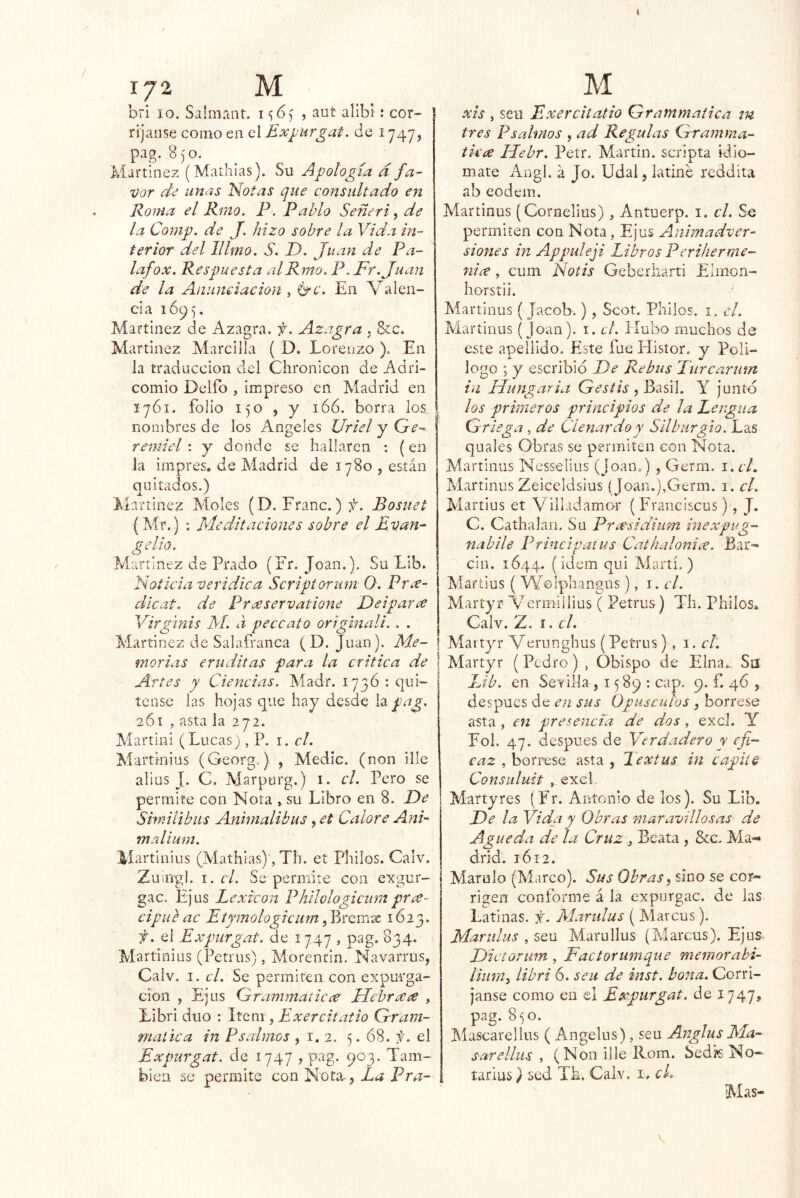 172 M
bri 10. Salmant. 1565 , aut alibi : cor-
rijanse como en el Expurgat. de 1747,
pag. 850.
Martinez (Mathias). Su Apología á fa-
vor de unas Notas que consultado en
Roma el Rmo. P. Pablo Señeri, de
la Comp. de J. hizo sobre la Vida in-
terior del Illmo. S. D. Juan de Pa-
lafox. Respuesta al Rmo. P. Fr. Juan
de la Anunciacion , &c. En Valen-
cia 1695.
Martinez de Azagra. ℣. Azagra , &c.
Martinez Marcilla ( D. Lorenzo ). En
la traduccion del Chronicon de Adri-
comio Delfo , impreso en Madrid en
1761. folio 150 , y 166. borra los
nombres de los Angeles Uriel y Ge-
remiel : y donde se hallaren : (en
la impres. de Madrid de 1780 , están
quitados.)
Martinez Moles (D. Franc.) ℣. Bosuet
(Mr.) : Meditaciones sobre el Evan-
gelio.
Martinez de Prado (Fr. Joan.). Su Lib.
Noticia veridica Scriptorum O. Præ-
dicat. de Præservatione Deiparæ
Virginis M. à peccato originali. . .
Martinez de Salafranca (D. Juan). Me-
morias eruditas para la critica de
Artes y Ciencias. Madr. 1736 : qui-
tense las hojas que hay desde la pag.
261 , asta la 272.
Martini (Lucas), P. 1. cl.
Martinius (Georg.) , Medic. (non ille
alius J. C. Marpurg.) 1. cl. Pero se
permite con Nota , su Libro en 8. De
Similibus Animalibus , et Calore Ani-
malium.
Martinius (Mathias), Th. et Philos. Calv.
Zuingl. 1. cl. Se permite con exgur-
gac. Ejus Lexicon Philologicum præ-
cipuè ac Etymologicum, Bremæ 1623.
℣. el Expurgat. de 1747 , pag. 834.
Martinius (Petrus), Morentin. Navarrus,
Calv. 1. cl. Se permiten con expurga-
cion , Ejus Grammaticæ Hebrææ ,
Libri duo : Item , Exercitatio Gram-
matica in Psalmos , 1. 2. 5. 68. ℣. el
Expurgat. de 1747 , pag. 903. Tam-
bien se permite con Nota , La Pra-
M
xis , seu Exercitatio Grammatica in
tres Psalmos , ad Regulas Gramma-
ticæ Hebr. Petr. Martin. scripta idio-
mate Angl. à Jo. Udal, latinè reddita
ab eodem.
Martinus (Cornelius) , Antuerp. 1. cl. Se
permiten con Nota , Ejus Animadver-
siones in Appuleji Libros Periherme-
niæ , cum Notis Geberharti Elmon-
horstii.
Martinus ( Jacob. ) , Scot. Philos. 1. cl.
Martinus (Joan). 1. cl. Hubo muchos de
este apellido. Este fue Histor. y Poli-
logo ; y escribió De Rebus Turcarum
in Hungaria Gestis , Basil. Y juntó
los primeros principios de la Lengua
Griega , de Clenardo y Silburgio. Las
quales Obras se permiten con Nota.
Martinus Nesselius (Joan.) , Germ. 1. cl.
Martinus Zeiceldsius (Joan.),Germ. 1. cl.
Martius et Villadamor (Franciscus) , J.
C. Cathalan. Su Præsidium inexpug-
nabile Principatus Cathaloniæ. Bar-
cin. 1644. (idem qui Martí.)
Martius ( Wolphangus ) , 1. cl.
Martyr Vermillius ( Petrus) Th. Philos.
Calv. Z. 1. cl.
Martyr Verunghus (Petrus) , 1. cl.
Martyr (Pedro) , Obispo de Elna. Su
Lib. en Sevilla , 1589 : cap. 9. f. 46 ,
despues de en sus Opusculos , borrese
asta , en presencia de dos , excl. Y
Fol. 47. despues de Verdadero y efi-
caz , borrese asta , Textus in capite
Consuluit , excl.
Martyres (Fr. Antonio de los). Su Lib.
De la Vida y Obras maravillosas de
Agueda de la Cruz , Beata , &c. Ma-
drid. 1612.
Marulo (Marco). Sus Obras, sino se cor-
rigen conforme á la expurgac. de las
Latinas. ℣. Marulus ( Marcus ).
Marulus , seu Marullus (Marcus). Ejus
Dictorum , Factorumque memorabi-
lium, libri 6. seu de inst. bona. Corri-
janse como en el Expurgat. de 1747,
pag. 850.
Mascarellus ( Angelus) , seu Anglus Ma-
sarellus , (Non ille Rom. Sedis No-
tarius) sed Th. Calv. 1. cl.
Mas-